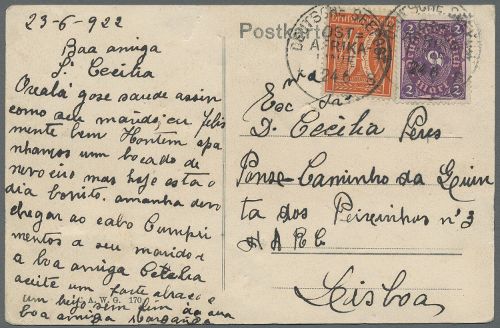 23-6-922
Boa amiga
S. Cecilia
Oxalá gose saude assim
como seu marido, eu feliz
mente bem Hontem apa
nhamos um bocado de
nevoeiro mas hoje esta o
dia bonito. amanha devo
chegar ao cabo Cumpri
mentos a seu marido e
a boa amiga Cecilia
aceite um forte abraço e
um beijo sem fim da sua
boa amiga
A. W. G. 170
Postkarte
DEUTSCHE SEEPOST
OST-
AFRIKA-
LINIE
24 6
DEUTSCHE SEEPOST
2 Mark 2
Exc
D. Cecilia Peres
Caminho da Quin
ta dos Peixinhos nº 3
Lisboa